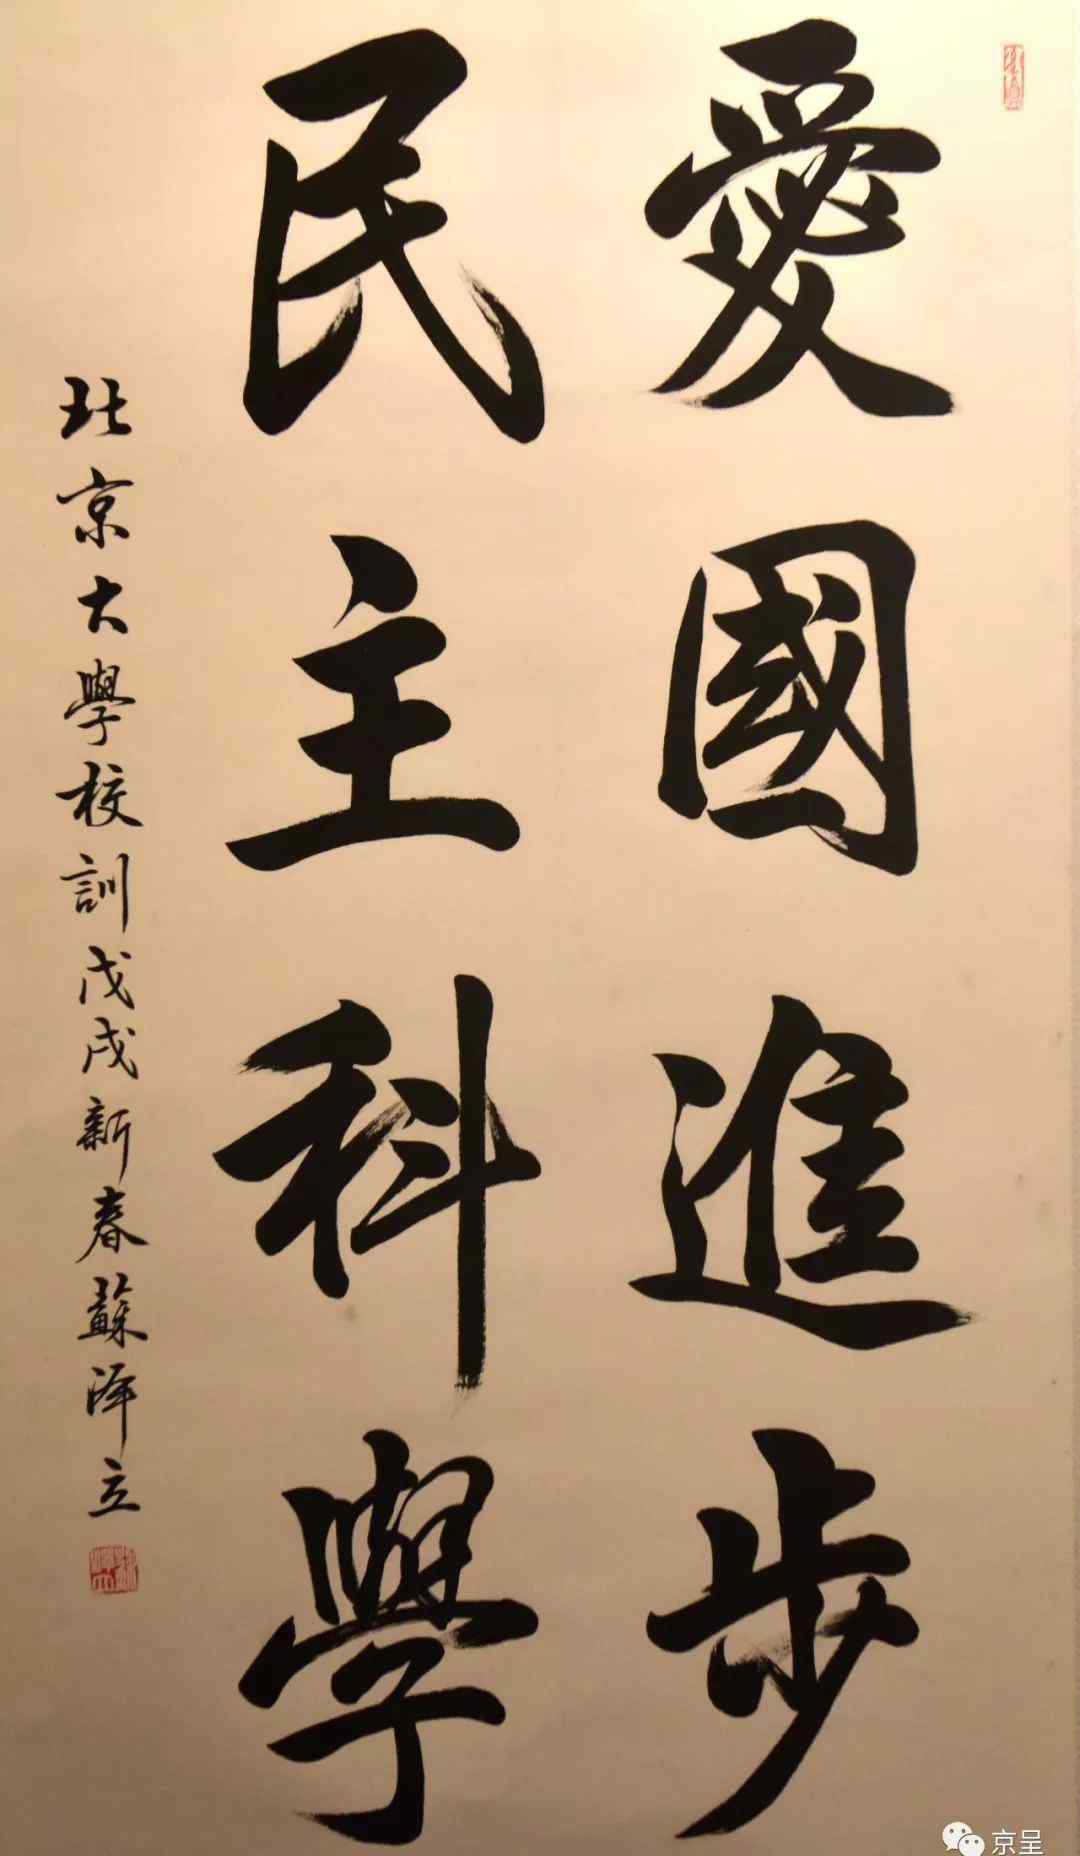 愛國進步
民主科學
北京大學校訓戊戌新春蘇澤立
京呈